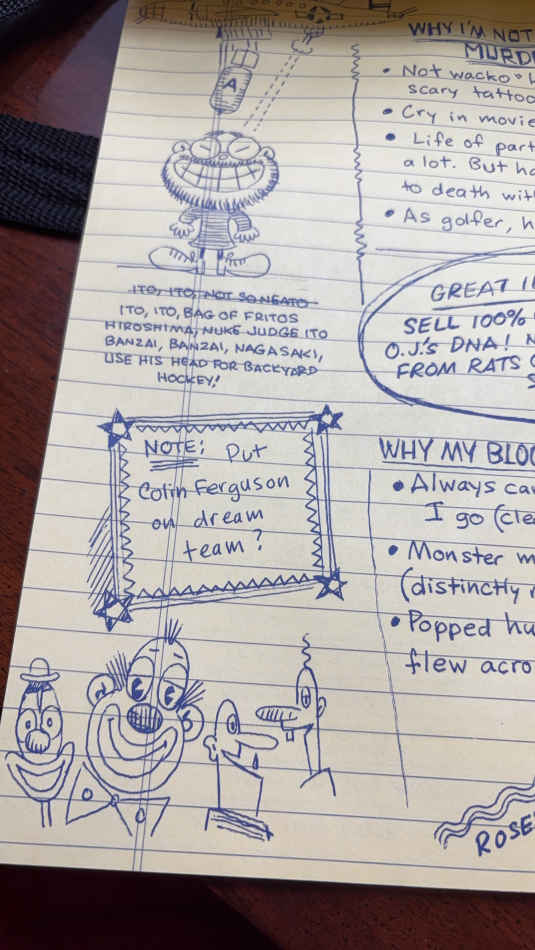 WHY I'M NOT
A
• Not wacko
scary tattoo
• Cry in movie
• Life of part
a lot. But ha
to death wit
• As golfer, h
ITO, ITO, NOT SO NEATO
ITO, ITO, BAG OF FRITOS
HIROSHIMA, NUKE JUDGE ITO
BANZAI, BANZAI, NAGASAKI,
USE HIS HEAD FOR BACKYARD
HOCKEY!
GREAT
SELL 100%
O.J.'s DNA!
FROM RATS
NOTE: Put
Colin Ferguson
on dream
team?
WHY MY BLOO
• Always ca
I go (cle
• Monster m
(distinctly
• Popped hu
flew acro
ROSE